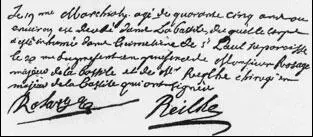 Le 19 me Marchioly agé de quarante cinq ans ou
environ est decedé dans La bastille, duquel le corps
a esté inhumé dans le cimetiere de St Paul sa paroisse
le 20 me du present en presence de Monsieur Rosage
majeur de la bastille et de Mr Reglhe chirurgien
majeur de la bastille qui ont signé
Rosarges
Reilhe